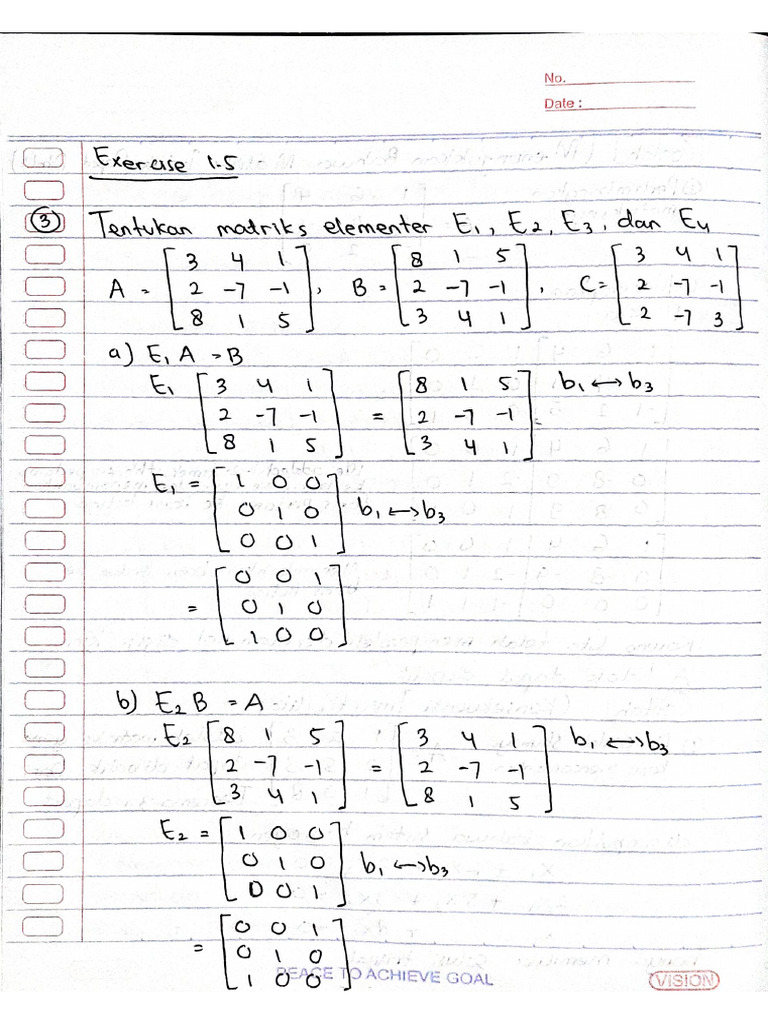 No.
Date :
Exercise 1.5
③ Tentukan matriks elementer E₁, E₂, E₃, dan E₄
A = [3 4 1; 2 -7 -1; 8 1 5], B = [8 1 5; 2 -7 -1; 3 4 1], C = [3 4 1; 2 -7 -1; 2 -7 3]
a) E₁ A = B
E₁ [3 4 1; 2 -7 -1; 8 1 5] = [8 1 5; 2 -7 -1; 3 4 1] b₁ ↔ b₃
E₁ = [1 0 0; 0 1 0; 0 0 1] b₁ ↔ b₃
= [0 0 1; 0 1 0; 1 0 0]
b) E₂ B = A
E₂ [8 1 5; 2 -7 -1; 3 4 1] = [3 4 1; 2 -7 -1; 8 1 5] b₁ ↔ b₃
E₂ = [1 0 0; 0 1 0; 0 0 1] b₁ ↔ b₃
= [0 0 1; 0 1 0; 1 0 0]
PEACE TO ACHIEVE GOAL
VISION